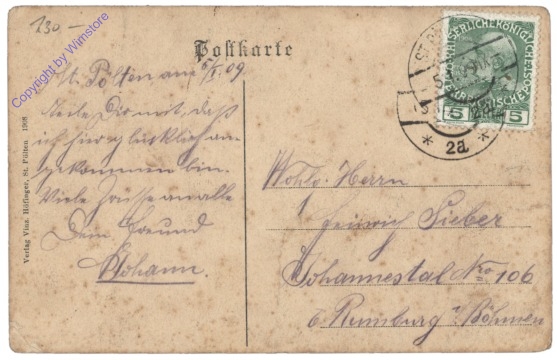 130.-
Copyright by Wimstore
Postkarte
St. Pölten am 5/I. 09
Teile Dir mit, daß
ich hier glücklich an-
gekommen bin.
Viele Grüsse an alle
Dein Freund
Johann.
Verlag Vinz. Höfinger, St. Pölten. 1908
KAISERLICHE KÖNIGLICHE
5 5
* 2a *
Wohlg. Herrn
Heinrich Lieber
Johannestal Nro 106
b. Rumburg i/Böhmen